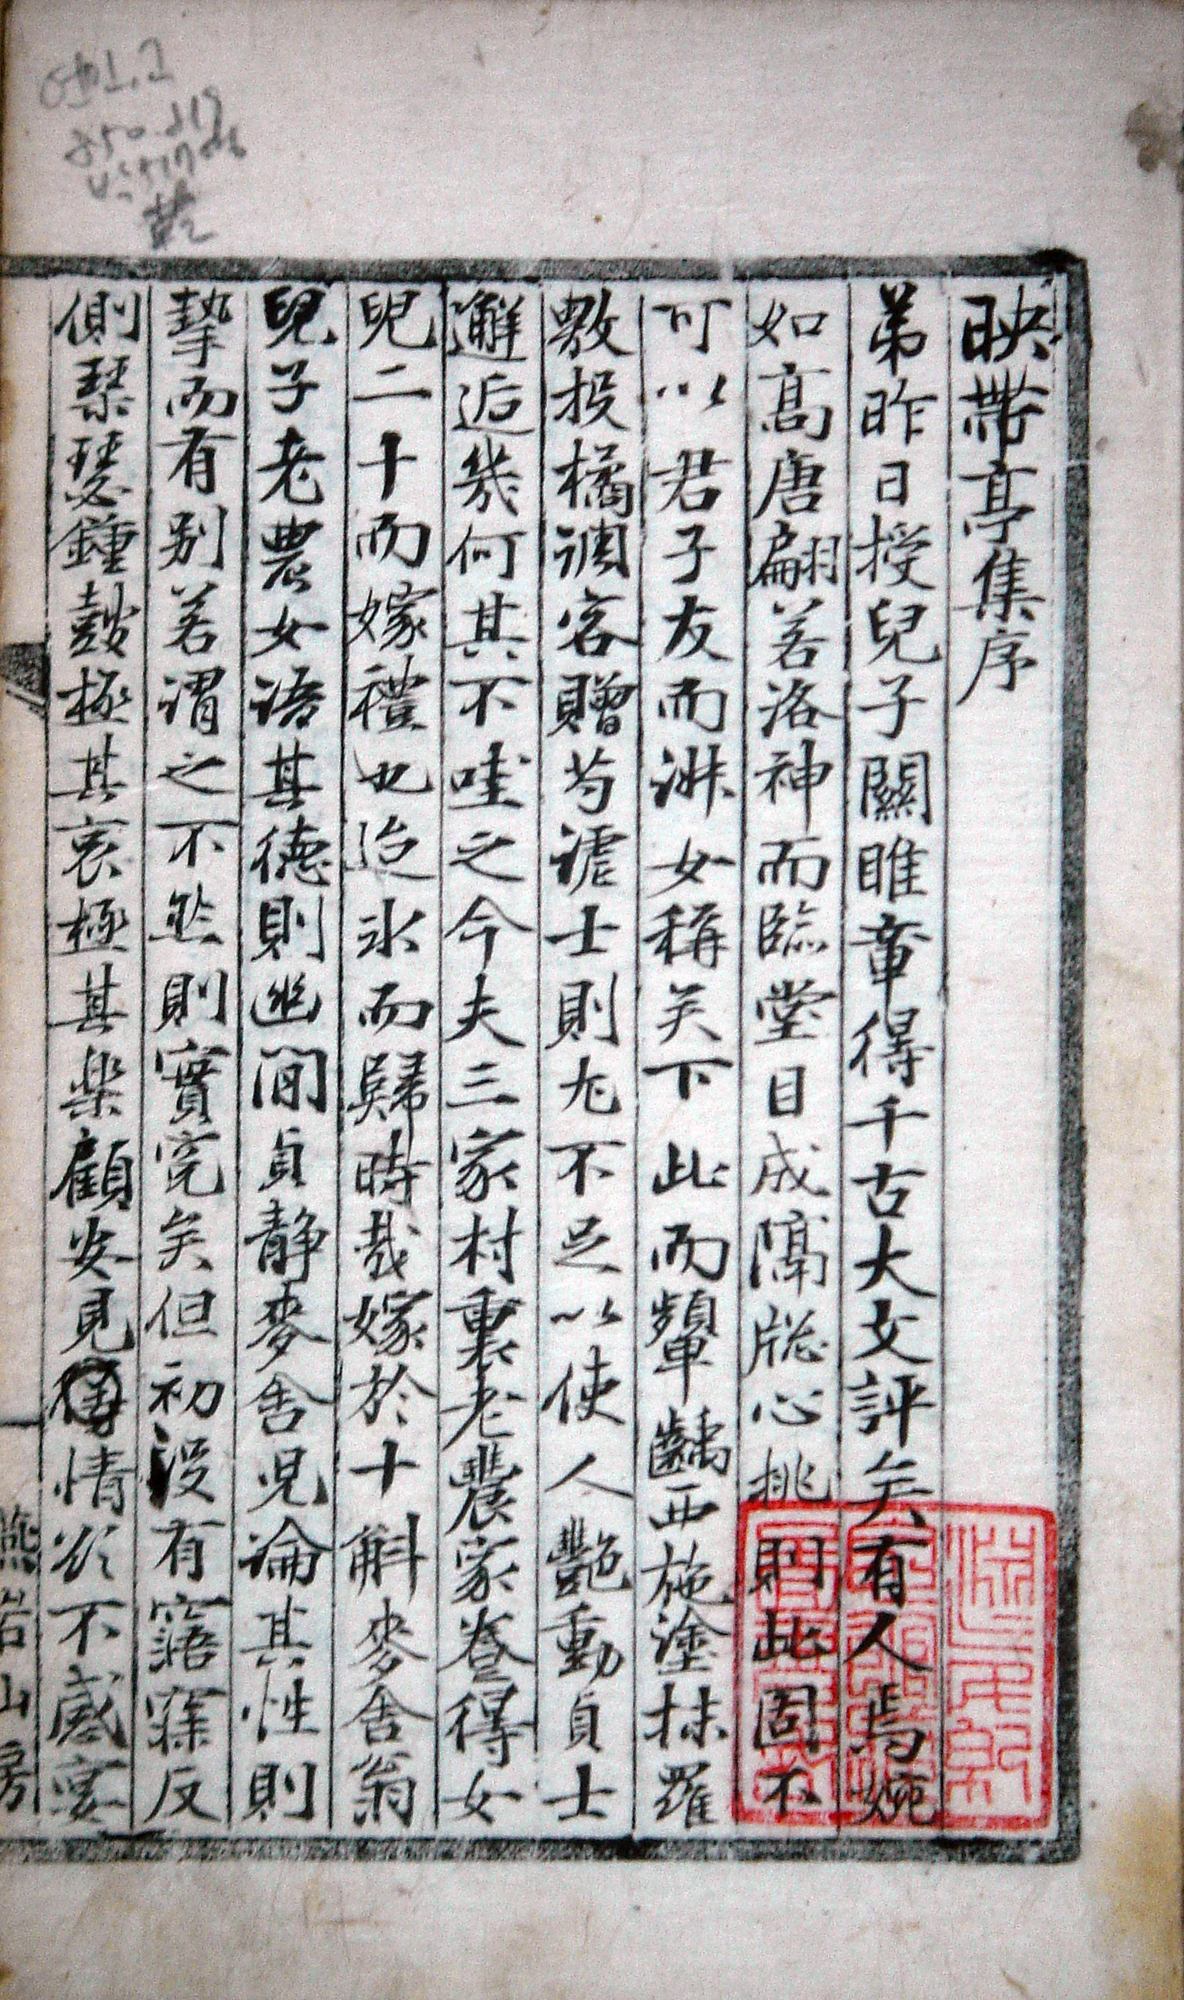 映帶亭集序
弟昨日授兒子關雎章得千古大文評矣有人焉婉
如高唐翩若洛神而臨堂目成隔牕心挑則此固不
可以君子友而淑女稱矣下此而顰齲西施塗抹羅
敷投橘調客贈芍謔士則尤不足以使人艶動貞士
邂逅幾何其不唾之今夫三家村裏老農家養得女
兒二十而嫁禮也迨氷而歸時哉嫁於十斛麥舍翁
兒子老農女語其德則幽閒貞靜麥舍兒論其性則
摯而有别若謂之不然則實寃矣但初没有寤寐反
側琴瑟鍾鼓極其哀極其樂顧安見得情欲不感宴
燕岩山房